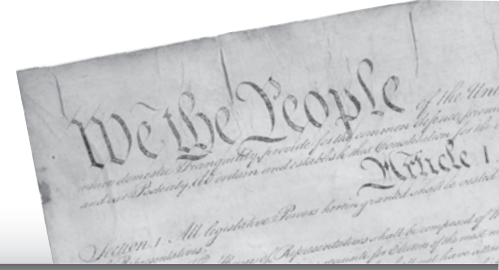 We the People of the Uni
insure domestic Tranquility, provide for the common defence, prom
and our Posterity, do ordain and establish this Constitution for the
Article I
Section 1. All legislative Powers herein granted shall be vested
Representatives.
of Representatives shall be composed of